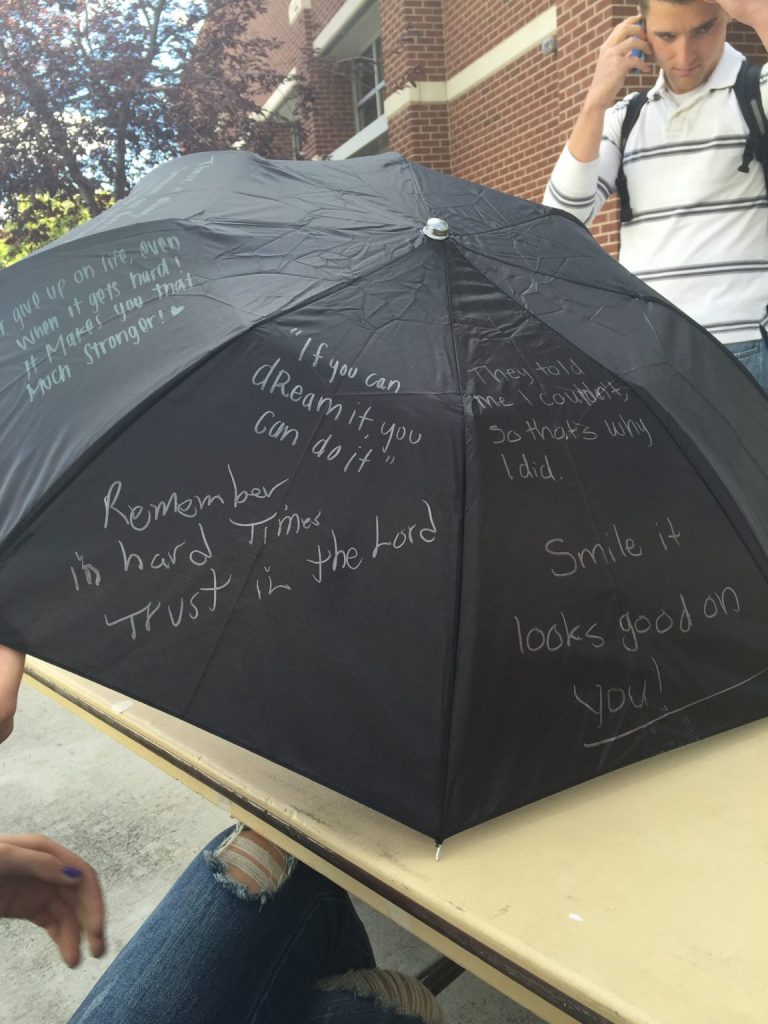 give up on life, even
when it gets hard!
It Makes you that
Much Stronger!
"If you can
dReam it, you
can do it"
Remember
in hard Times
Trust in the Lord
They told
me I couldn't,
so that's why
I did.
Smile it
looks good on
you!